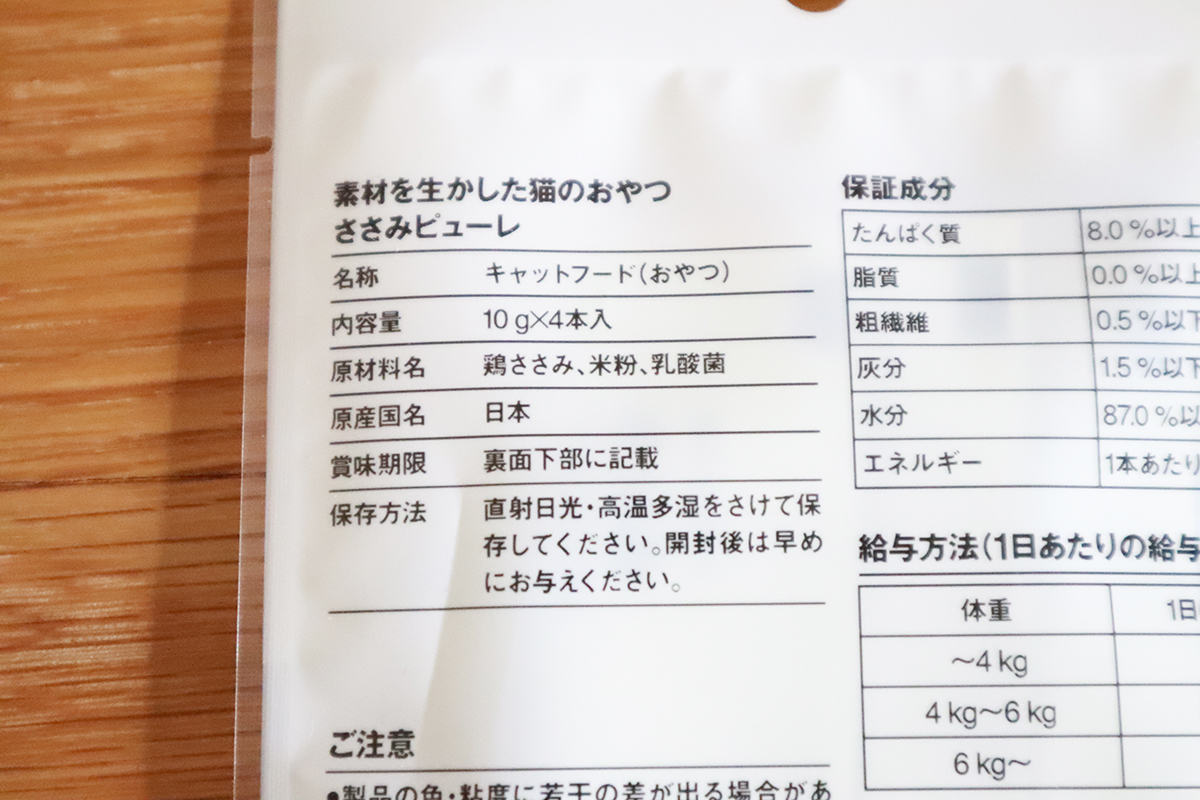 素材を生かした猫のおやつ
ささみピューレ
名称 キャットフード(おやつ)
内容量 10g×4本入
原材料名 鶏ささみ、米粉、乳酸菌
原産国名 日本
賞味期限 裏面下部に記載
保存方法 直射日光・高温多湿をさけて保
存してください。開封後は早め
にお与えください。
ご注意
●製品の色・粘度に若干の差が出る場合があ
保証成分
たんぱく質 8.0%以上
脂質 0.0%以上
粗繊維 0.5%以下
灰分 1.5%以下
水分 87.0%以
エネルギー 1本あたり
給与方法(1日あたりの給与
体重 1日
~4kg
4kg~6kg
6kg~